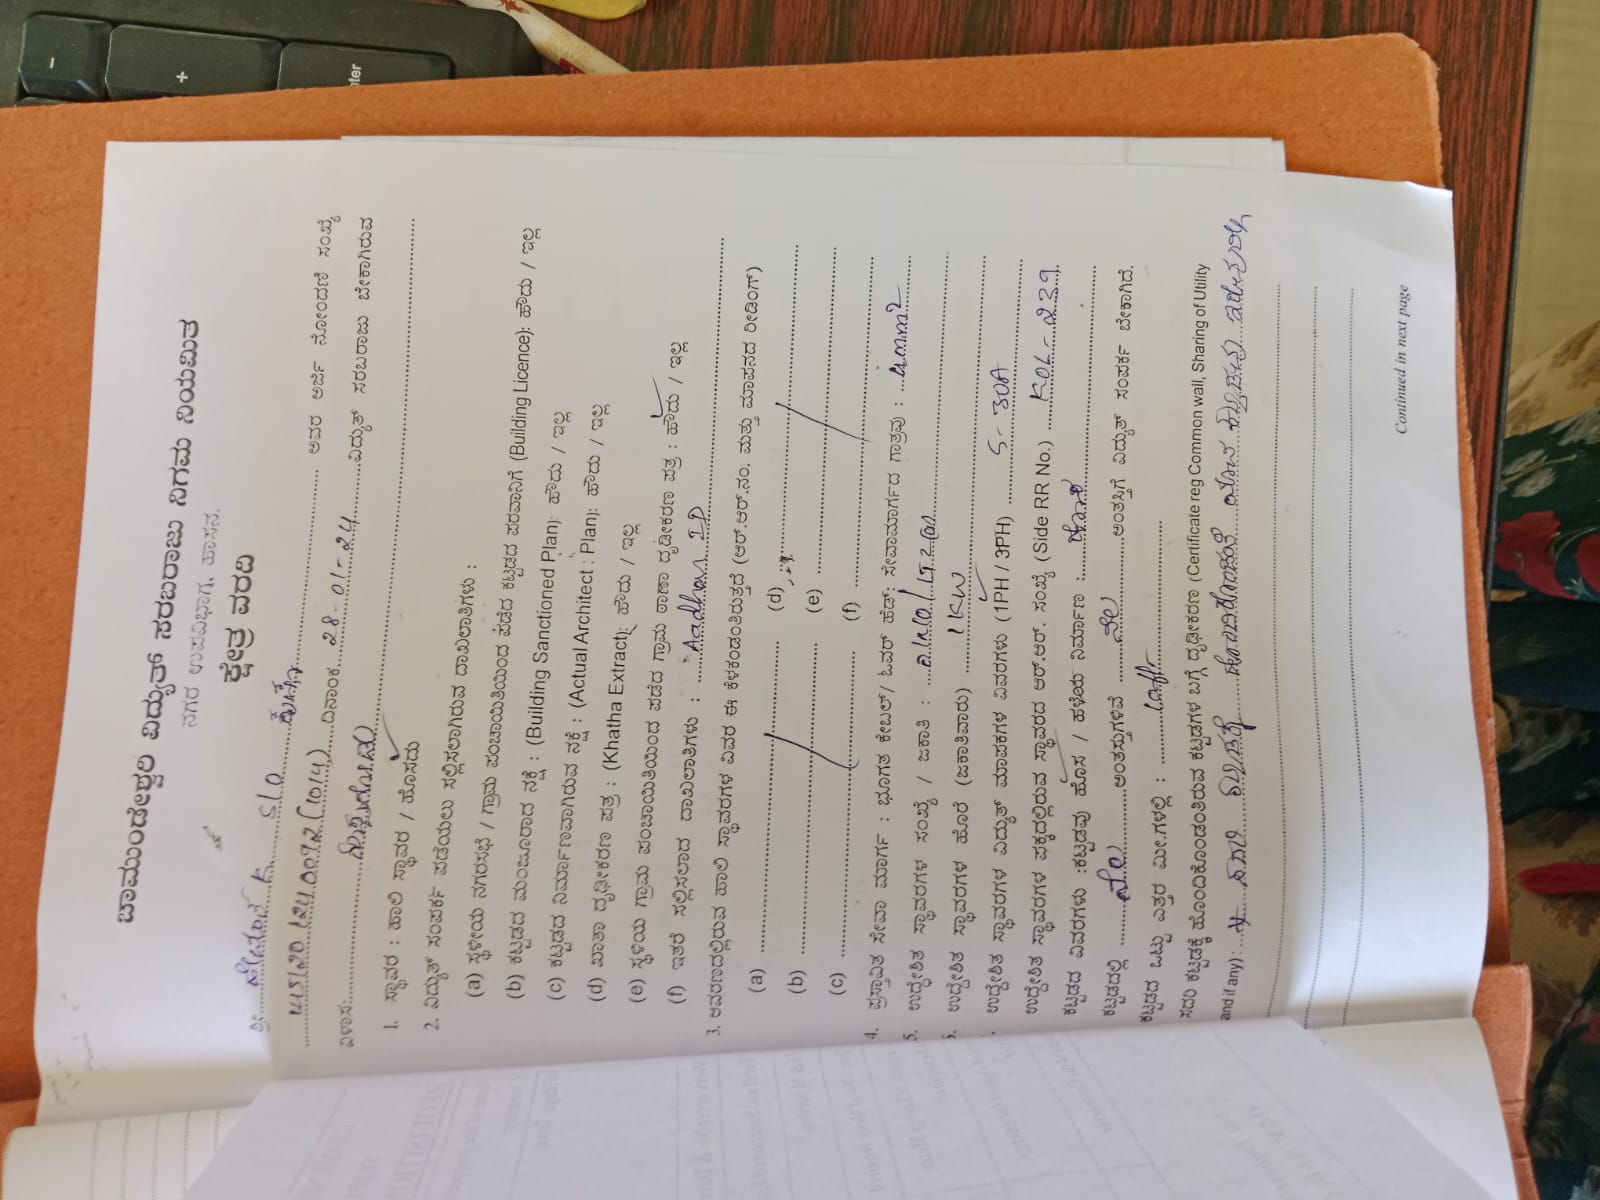 ಚಾಮುಂಡೇಶ್ವರಿ ವಿದ್ಯುತ್ ಸರಬರಾಜು ನಿಗಮ ನಿಯಮಿತ
ನಗರ ಉಪವಿಭಾಗ, ಹಾಸನ.
ಕ್ಷೇತ್ರ ವರದಿ
ಶ್ರೀ S/O
ಅವರ ಅರ್ಜಿ ನೋಂದಣಿ ಸಂಖ್ಯೆ
ದಿನಾಂಕ 28-01-24 ವಿದ್ಯುತ್ ಸರಬರಾಜು ಬೇಕಾಗಿರುವ
ವಿಳಾಸ:
1. ಸ್ಥಾವರ : ಹಾಲಿ ಸ್ಥಾವರ / ಹೊಸದು
2. ವಿದ್ಯುತ್ ಸಂಪರ್ಕ ಪಡೆಯಲು ಸಲ್ಲಿಸಲಾಗಿರುವ ದಾಖಲಾತಿಗಳು :
(a) ಸ್ಥಳೀಯ ನಗರಸಭೆ / ಗ್ರಾಮ ಪಂಚಾಯಿತಿಯಿಂದ ಪಡೆದ ಕಟ್ಟಡದ ಪರವಾನಿಗೆ (Building Licence): ಹೌದು / ಇಲ್ಲ
(b) ಕಟ್ಟಡದ ಮಂಜೂರಾದ ನಕ್ಷೆ : (Building Sanctioned Plan): ಹೌದು / ಇಲ್ಲ
(c) ಕಟ್ಟಡದ ನಿರ್ಮಾಣವಾಗಿರುವ ನಕ್ಷೆ : (Actual Architect : Plan): ಹೌದು / ಇಲ್ಲ
(d) ಖಾತಾ ದೃಢೀಕರಣ ಪತ್ರ : (Khatha Extract): ಹೌದು / ಇಲ್ಲ
(e) ಸ್ಥಳೀಯ ಗ್ರಾಮ ಪಂಚಾಯಿತಿಯಿಂದ ಪಡೆದ ಗ್ರಾಮ ಠಾಣಾ ದೃಢೀಕರಣ ಪತ್ರ : ಹೌದು / ಇಲ್ಲ
(f) ಇತರೆ ಸಲ್ಲಿಸಲಾದ ದಾಖಲಾತಿಗಳು : Aadhar ID
3. ಆವರಣದಲ್ಲಿರುವ ಹಾಲಿ ಸ್ಥಾವರಗಳ ವಿವರ ಈ ಕೆಳಕಂಡಂತಿರುತ್ತದೆ (ಆರ್.ಆರ್.ನಂ. ಮತ್ತು ಮಾಪನದ ರೀಡಿಂಗ್)
(a) (d)
(b) (e)
(c) (f)
4. ಪ್ರಸ್ತಾವಿತ ಸೇವಾ ಮಾರ್ಗ : ಭೂಗತ ಕೇಬಲ್/ ಓವರ್ ಹೆಡ್: ಸೇವಾಮಾರ್ಗದ ಗಾತ್ರವು : 4mm2
5. ಉದ್ದೇಶಿತ ಸ್ಥಾವರಗಳ ಸಂಖ್ಯೆ / ಜಕಾತಿ :
ಉದ್ದೇಶಿತ ಸ್ಥಾವರಗಳ ಹೊರೆ (ಜಕಾತಿವಾರು) 1KW
ಉದ್ದೇಶಿತ ಸ್ಥಾವರಗಳ ವಿದ್ಯುತ್ ಮಾಪಕಗಳ ವಿವರಗಳು (1PH / 3PH) 5-30A
ಉದ್ದೇಶಿತ ಸ್ಥಾವರಗಳ ಪಕ್ಕದಲ್ಲಿರುವ ಸ್ಥಾವರದ ಆರ್.ಆರ್. ಸಂಖ್ಯೆ (Side RR No.) KOL-239
ಕಟ್ಟಡದ ವಿವರಗಳು :ಕಟ್ಟಡವು ಹೊಸ / ಹಳೆಯ ನಿರ್ಮಾಣ :
ಕಟ್ಟಡದಲ್ಲಿ ಅಂತಸ್ತುಗಳಿವೆ ಅಂತಸ್ತಿಗೆ ವಿದ್ಯುತ್ ಸಂಪರ್ಕ ಬೇಕಾಗಿದೆ.
ಕಟ್ಟಡದ ಒಟ್ಟು ಎತ್ತರ ಮೀ.ಗಳಲ್ಲಿ :
ಸದರಿ ಕಟ್ಟಡಕ್ಕೆ ಹೊಂದಿಕೊಂಡಂತಿರುವ ಕಟ್ಟಡಗಳ ಬಗ್ಗೆ ದೃಢೀಕರಣ (Certificate reg Common wall, Sharing of Utility
and if any) :
Continued in next page